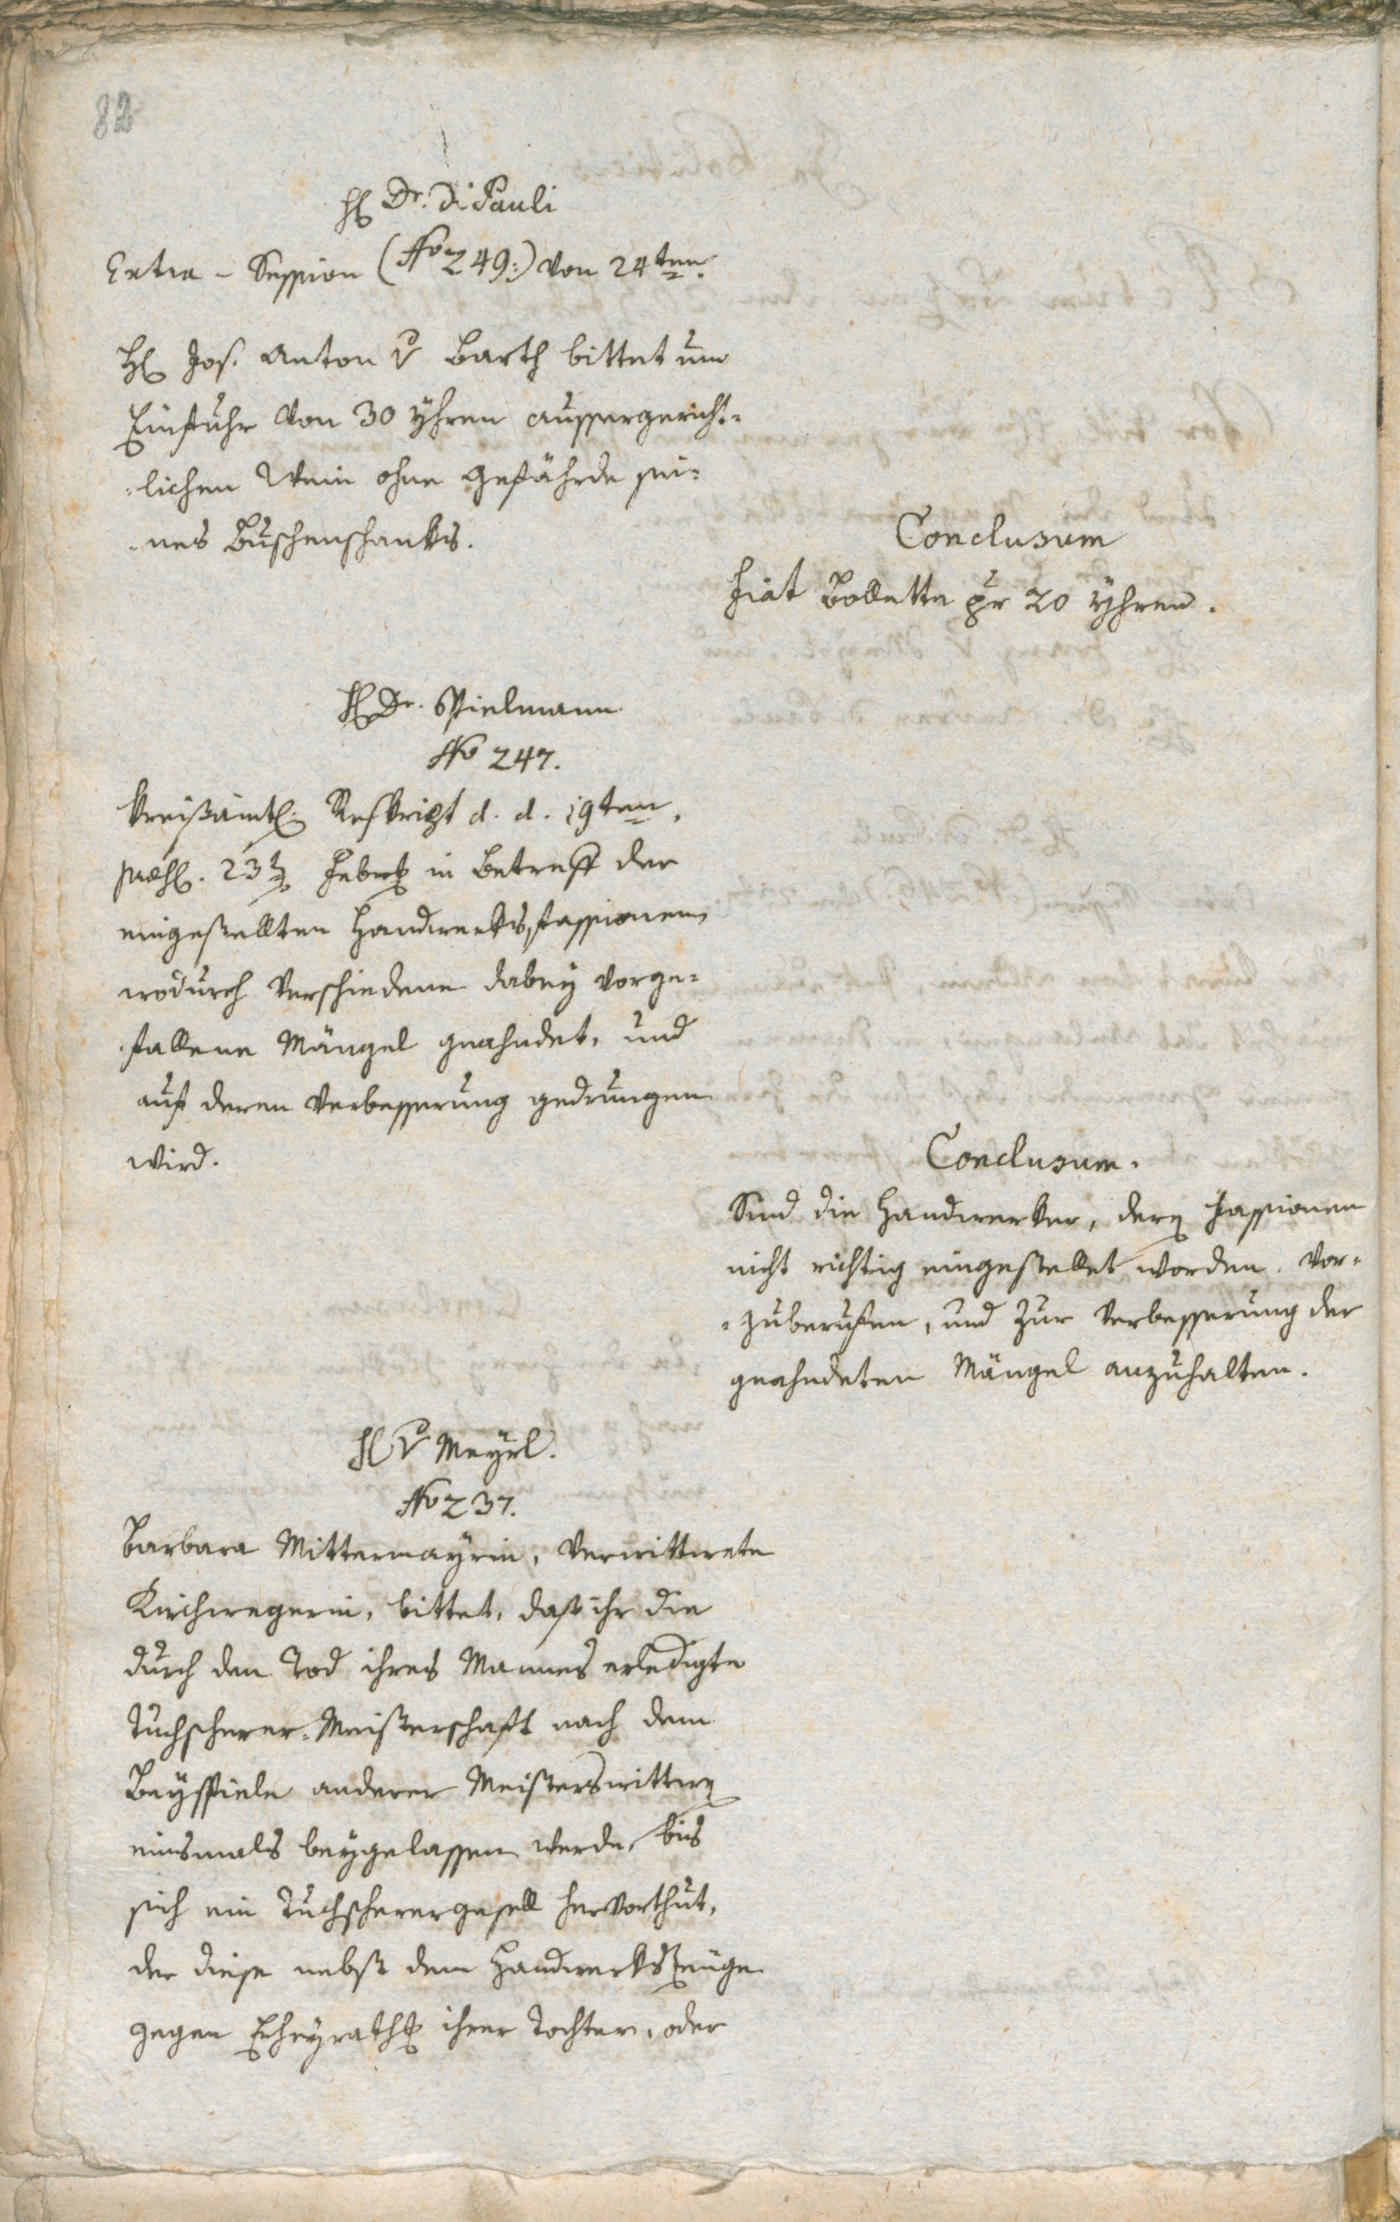 82
H Dr. Di Pauli
Extra-Session (No 249:) von 24ten.
H Jos. Anton v Barth bittet um
Einfuhr von 30 Yhren aussergericht-
-lichen Wein ohne Gefährde sei-
-nes Buschenschanks.
Conclusum
Fiat Bollette pr 20 Yhren.
H Dr. Spielmann
No 247.
Kreißämtl. Reskript d. d. 19ten,
praes. 23t Febr in Betreff der
eingestellten Handwerksfassionen
wodurch verschiedene dabey vorge-
fallene Mängel geahndet, und
auf deren Verbesserung gedrungen
wird.
Conclusum.
Sind die Handwerker, deren Fassionen
nicht richtig eingestellet worden, vor-
-zuberufen, und zur Verbesserung der
geahndeten Mängel anzuhalten.
H v Meyrl.
No 237.
Barbara Mittermayrin, verwittwete
Kirchwegerin, bittet, daß ihr die
durch den Tod ihres Mannes erledigte
Tuchscherer-Meisterschaft nach dem
Beyspiele anderer Meisterswittwen
einsmals beygelassen werde, bis
sich ein Tuchscherergesell hervorthut,
der diese nebst dem Handwerkszeuge
gegen Eheyrath ihrer Tochter, oder